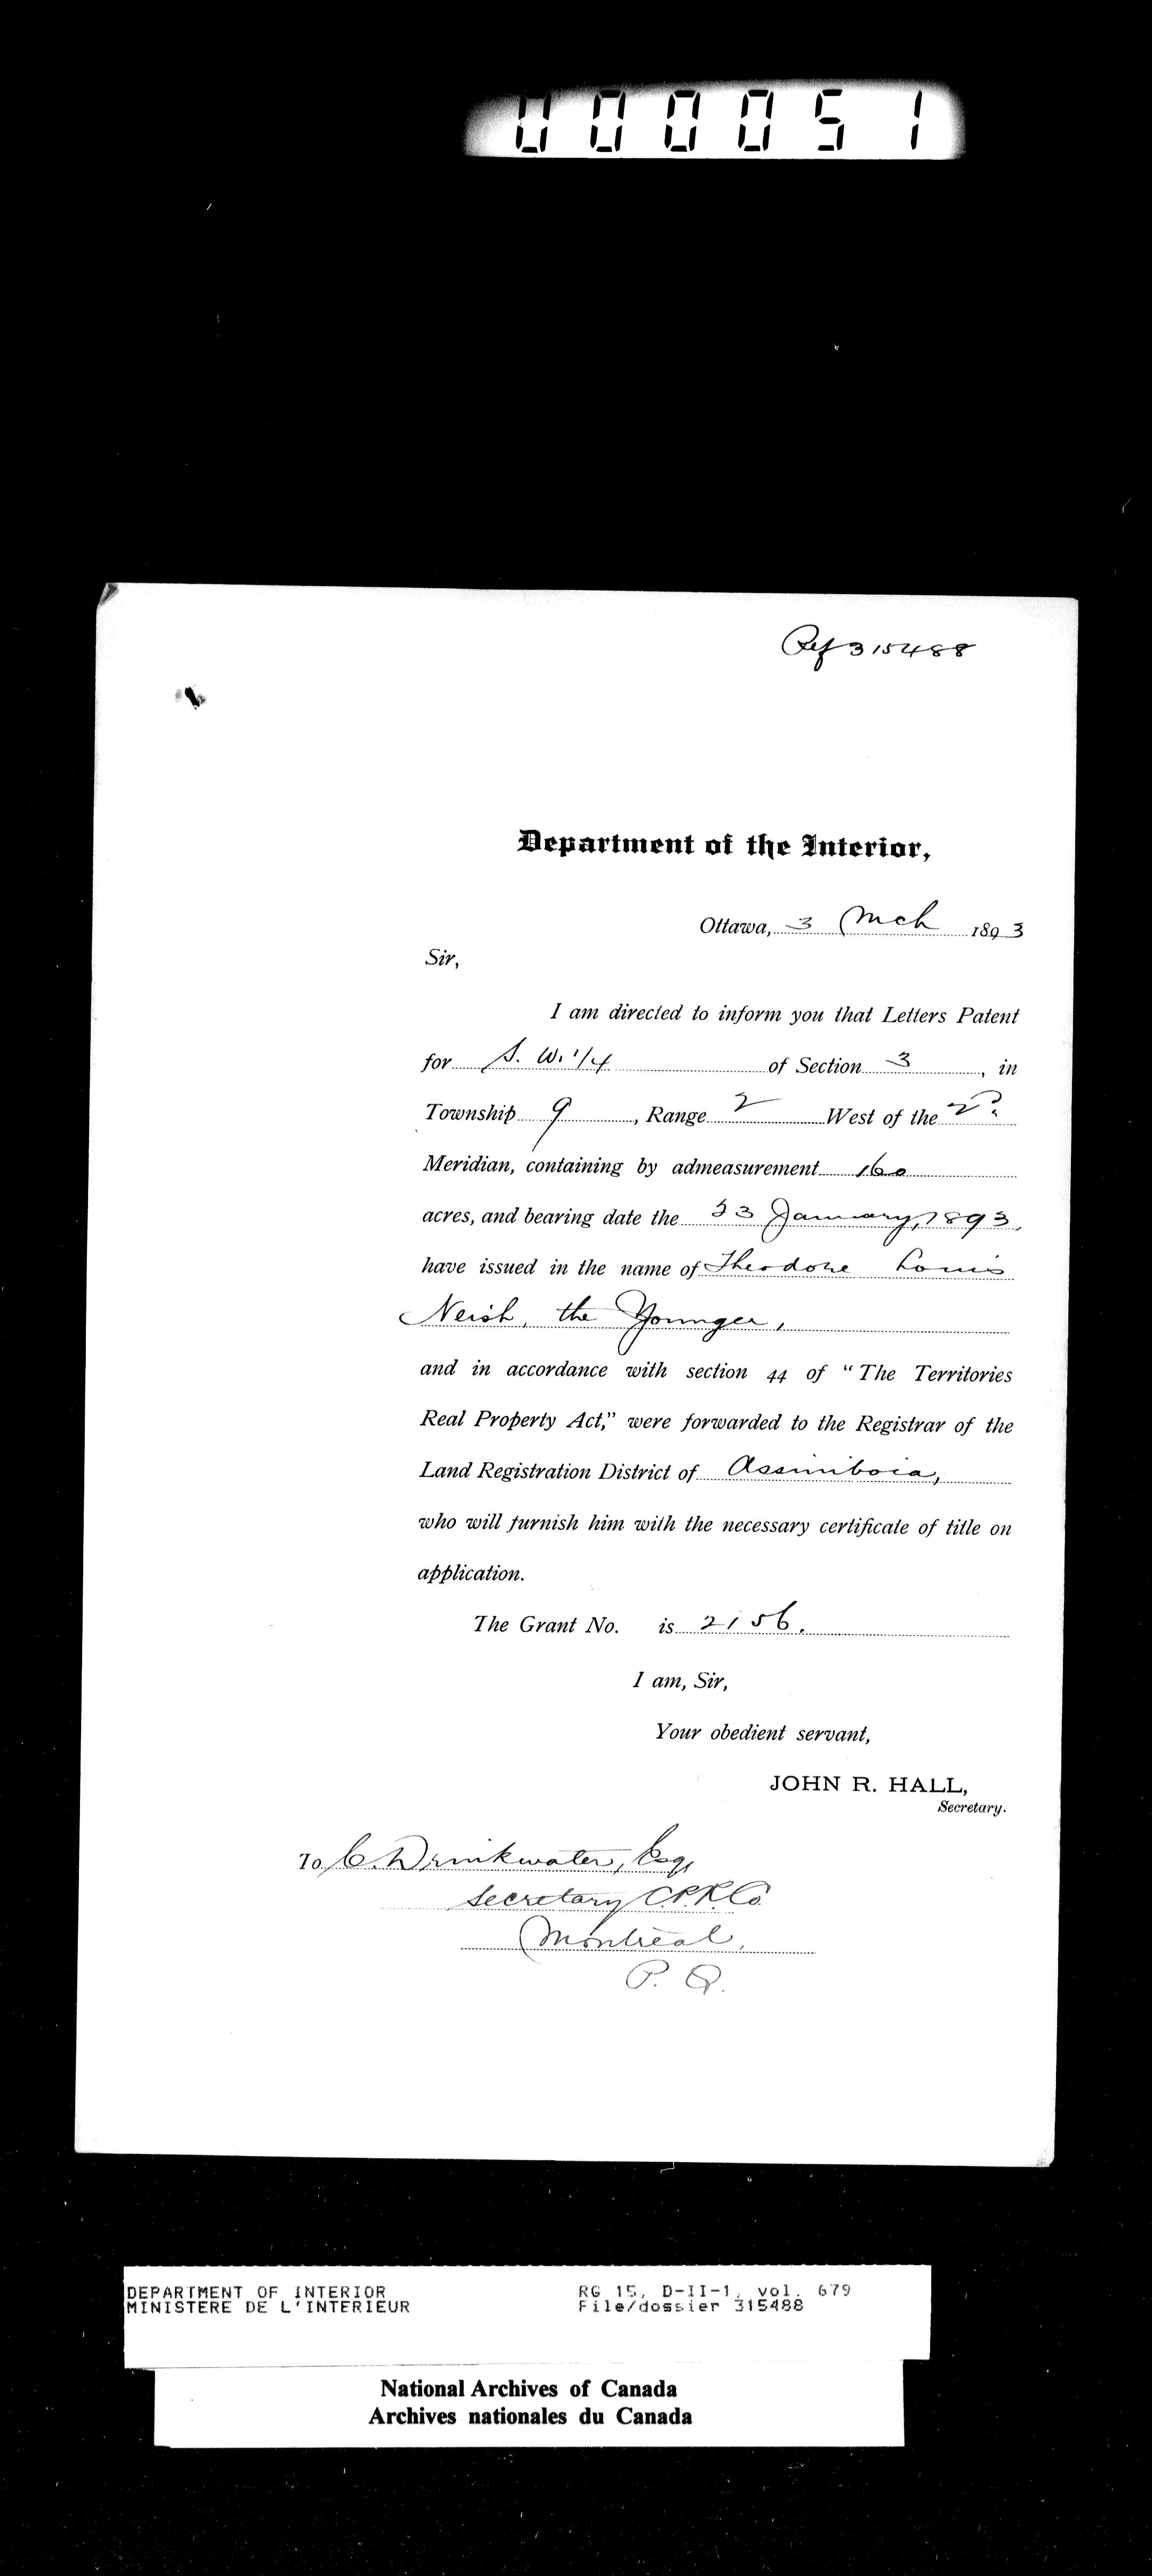 000051
Ref 315488
Department of the Interior,
Ottawa, 3 Mch 1893
Sir,
I am directed to inform you that Letters Patent
for S. W. 1/4 of Section 3, in
Township 9, Range 2 West of the 2d.
Meridian, containing by admeasurement 160
acres, and bearing date the 23 January, 1893,
have issued in the name of Theodore Louis
Neish, the Younger,
and in accordance with section 44 of "The Territories
Real Property Act," were forwarded to the Registrar of the
Land Registration District of Assiniboia,
who will furnish him with the necessary certificate of title on
application.
The Grant No. is 2156.
I am, Sir,
Your obedient servant,
JOHN R. HALL,
Secretary.
To C. Drinkwater, Esq,
Secretary C.P.R. Co.
Montreal,
P. Q.
DEPARTMENT OF INTERIOR RG 15, D-II-1, vol. 679
MINISTERE DE L'INTERIEUR File/dossier 315488
National Archives of Canada
Archives nationales du Canada